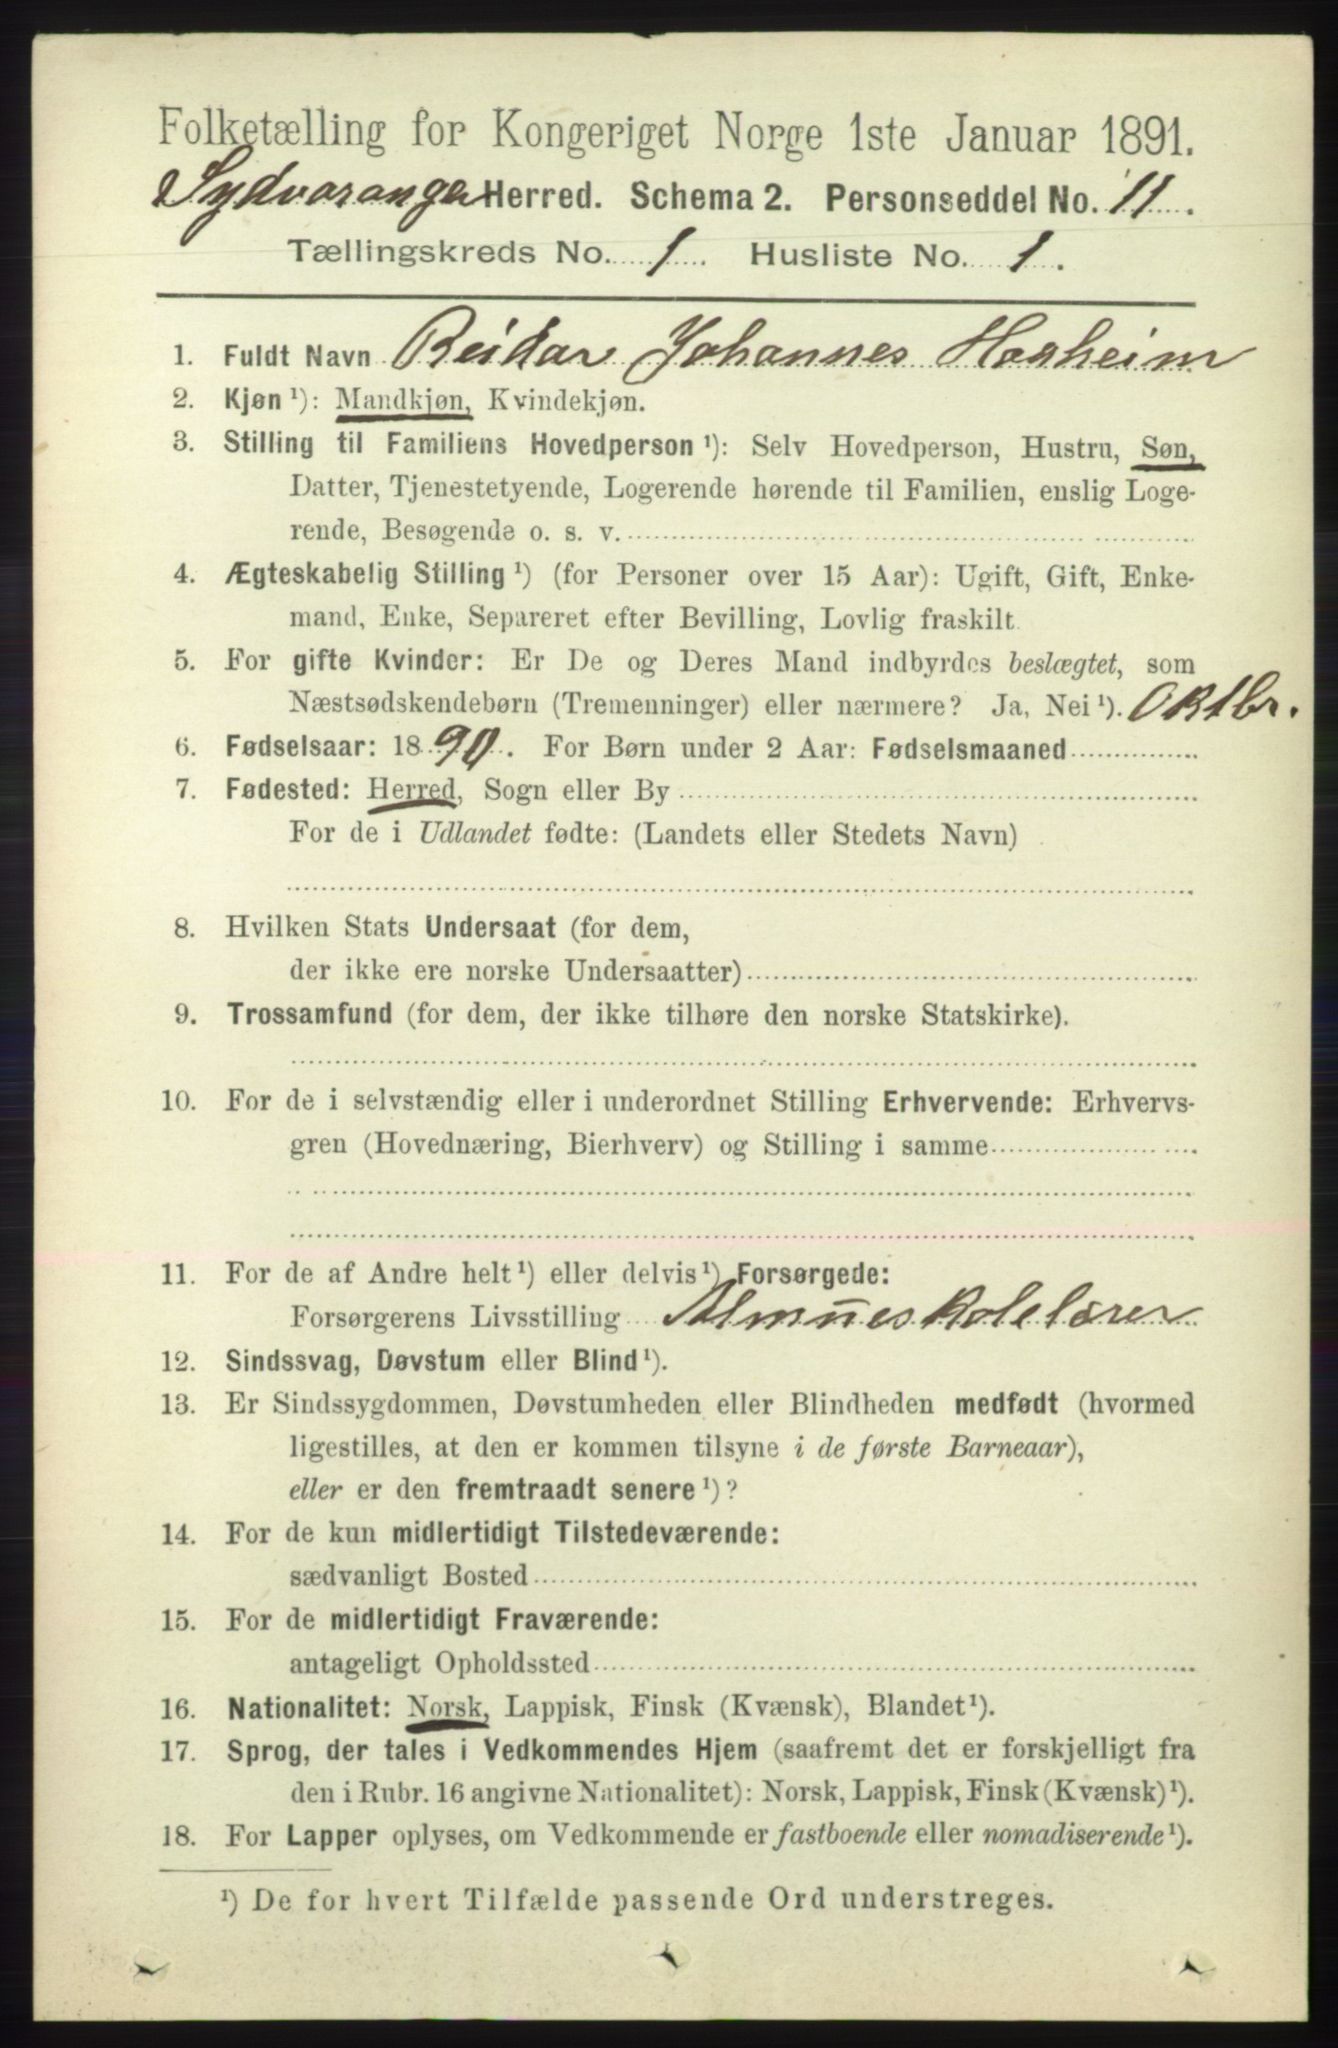 Folketælling for Kongeriget Norge 1ste Januar 1891.
Sydvaranger Herred. Schema 2. Personseddel No. 11.
Tællingskreds No. 1. Husliste No. 1.
1. Fuldt Navn Reidar Johannes Hoxheim
2. Kjøn ¹): Mandkjøn, Kvindekjøn.
3. Stilling til Familiens Hovedperson ¹): Selv Hovedperson, Hustru, Søn,
Datter, Tjenestetyende, Logerende hørende til Familien, enslig Loge-
rende, Besøgende o. s. v.
4. Ægteskabelig Stilling ¹) (for Personer over 15 Aar): Ugift, Gift, Enke-
mand, Enke, Separeret efter Bevilling, Lovlig fraskilt
5. For gifte Kvinder: Er De og Deres Mand indbyrdes beslægtet, som
Næstsødskendebørn (Tremenninger) eller nærmere? Ja, Nei ¹). Oktbr.
6. Fødselsaar: 1890. For Børn under 2 Aar: Fødselsmaaned
7. Fødested: Herred, Sogn eller By
For de i Udlandet fødte: (Landets eller Stedets Navn)
8. Hvilken Stats Undersaat (for dem,
der ikke ere norske Undersaatter)
9. Trossamfund (for dem, der ikke tilhøre den norske Statskirke).
10. For de i selvstændig eller i underordnet Stilling Erhvervende: Erhvervs-
gren (Hovednæring, Bierhverv) og Stilling i samme
11. For de af Andre helt ¹) eller delvis ¹) Forsørgede:
Forsørgerens Livsstilling Almueskolelærer
12. Sindssvag, Døvstum eller Blind ¹).
13. Er Sindssygdommen, Døvstumheden eller Blindheden medfødt (hvormed
ligestilles, at den er kommen tilsyne i de første Barneaar),
eller er den fremtraadt senere ¹)?
14. For de kun midlertidigt Tilstedeværende:
sædvanligt Bosted
15. For de midlertidigt Fraværende:
antageligt Opholdssted
16. Nationalitet: Norsk, Lappisk, Finsk (Kvænsk), Blandet ¹).
17. Sprog, der tales i Vedkommendes Hjem (saafremt det er forskjelligt fra
den i Rubr. 16 angivne Nationalitet): Norsk, Lappisk, Finsk (Kvænsk) ¹).
18. For Lapper oplyses, om Vedkommende er fastboende eller nomadiserende ¹).
¹) De for hvert Tilfælde passende Ord understreges.